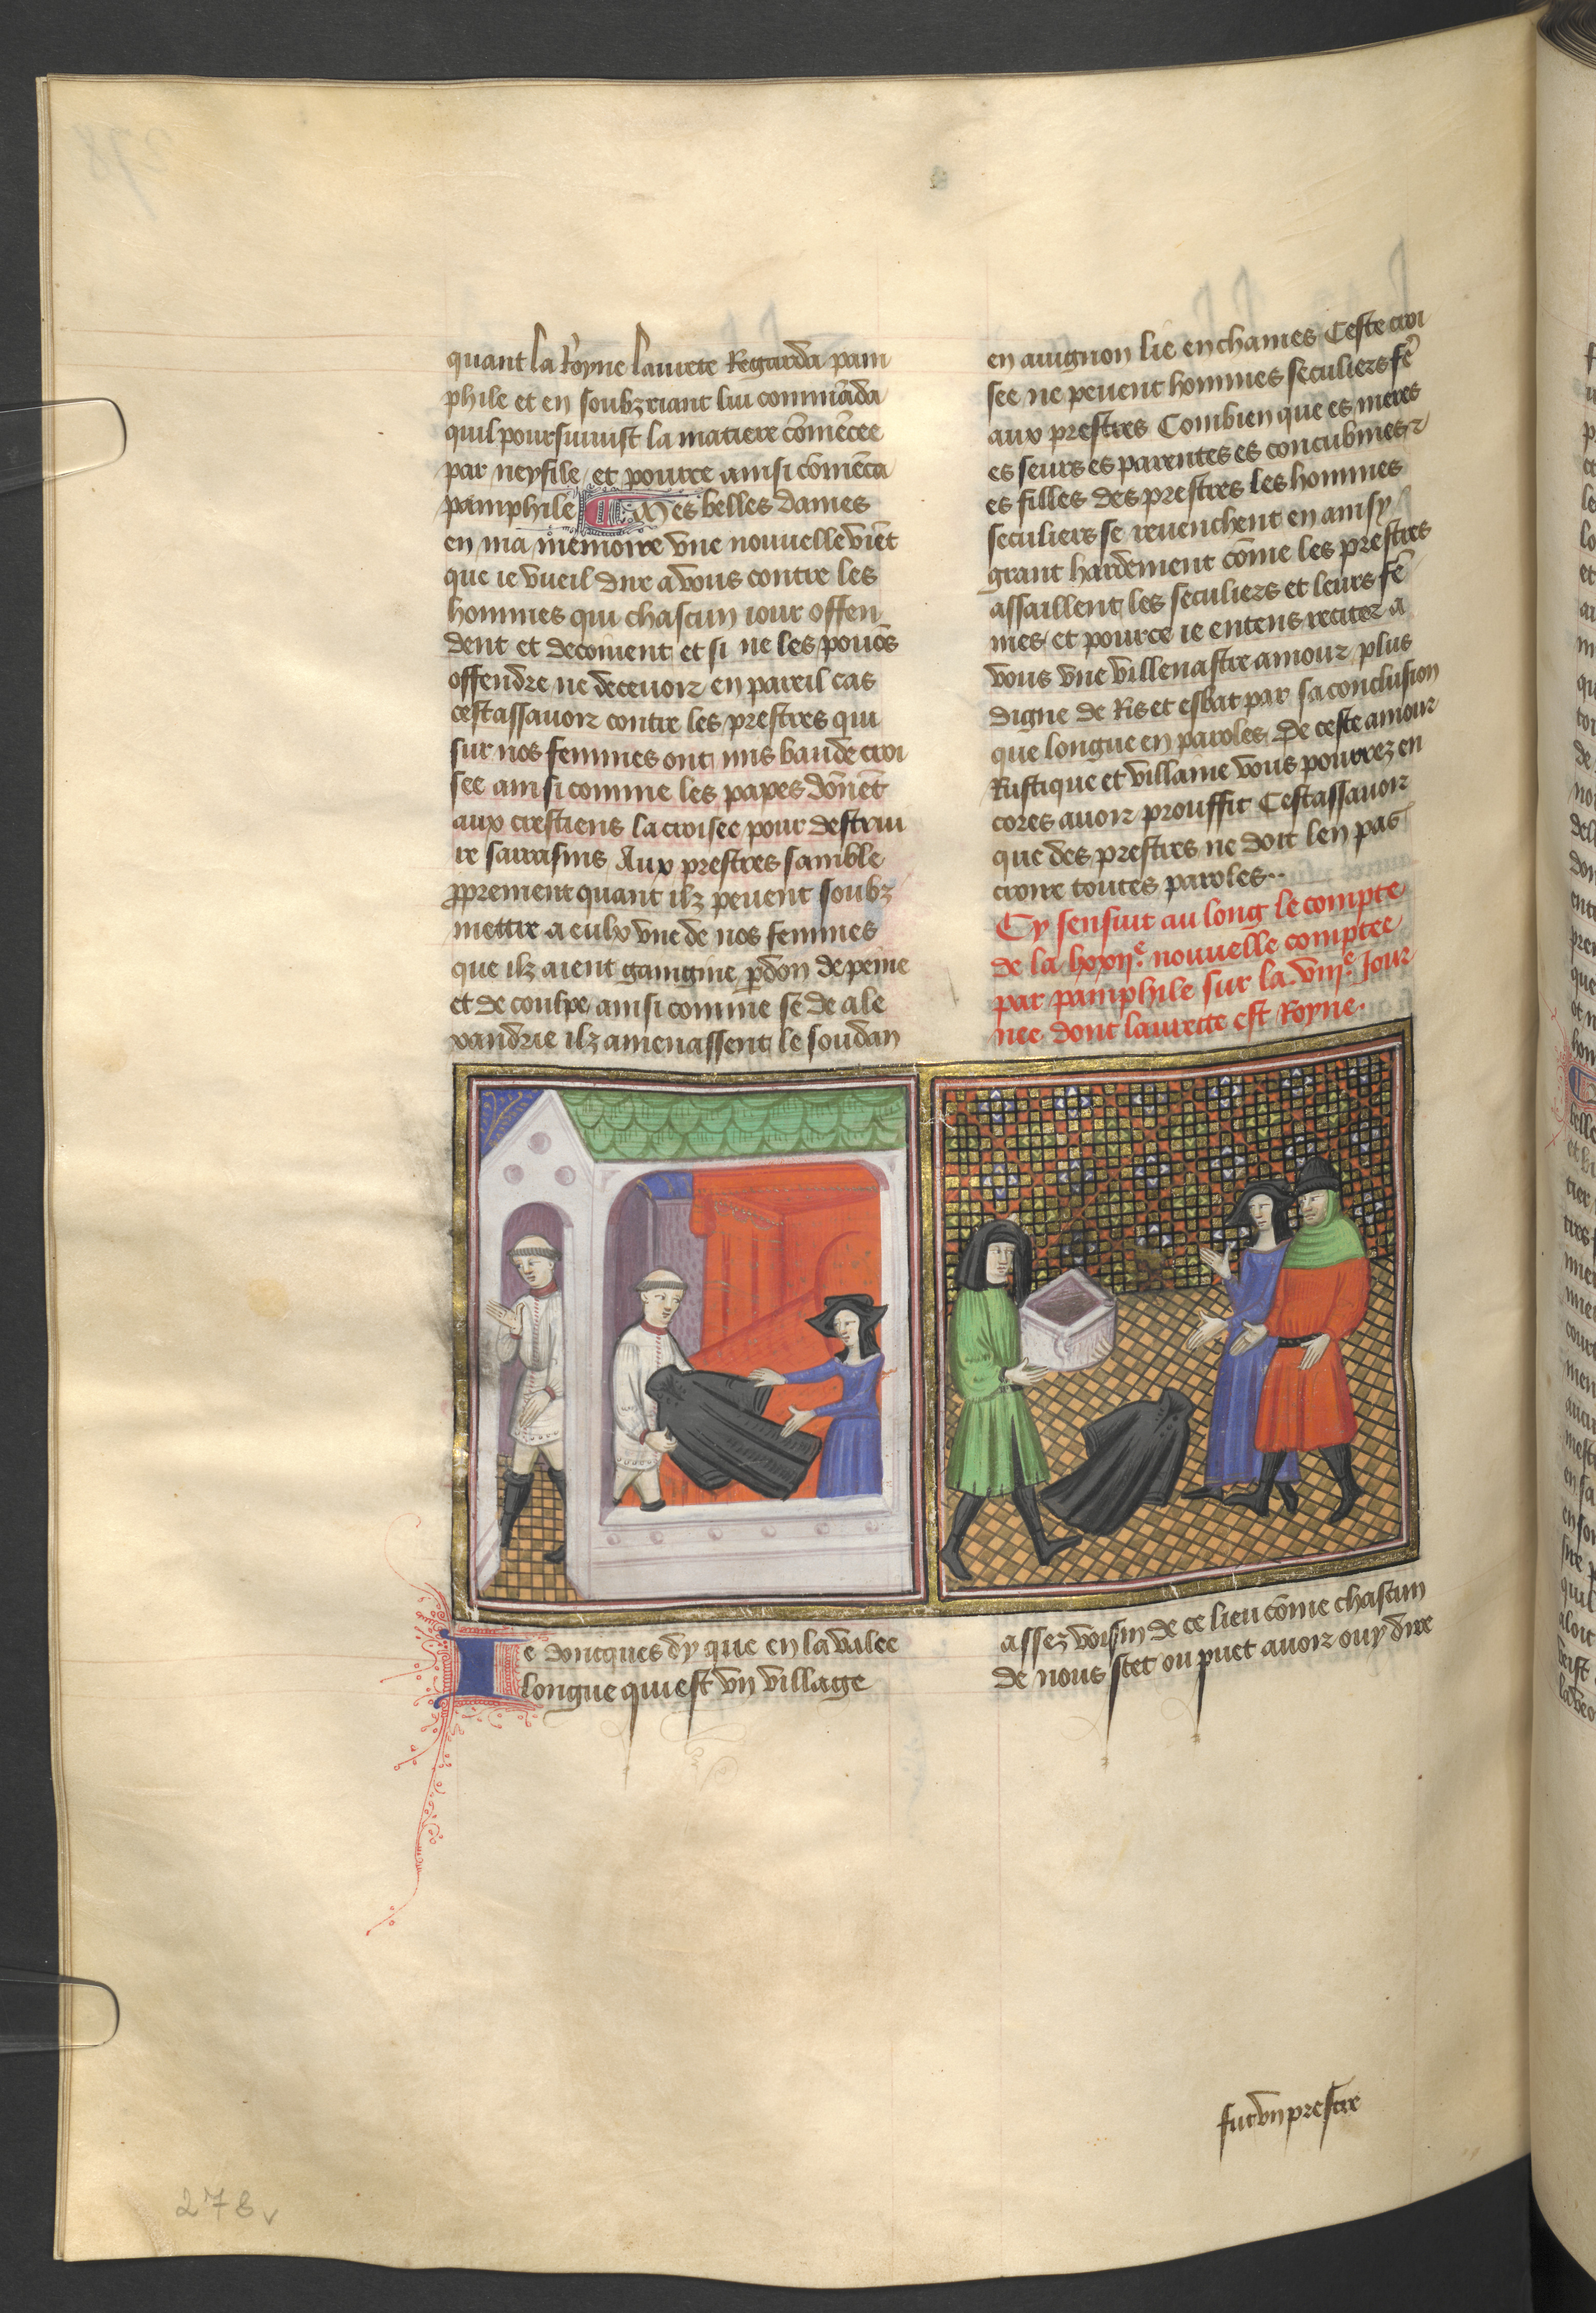 quant la royne laurete regarda pam
phile et en soubzriant lui commāda
quil poursuiuist la matiere cōmēcee
par neyfile et pource ainsi cōmēca
pamphile Mes belles dames
en ma memoire vne nouuelle viēt
que ie vueil dire a vous contre les
hommes qui chascun iour offen
dent et decoiuent et si ne les pouōs
offendre ne deceuoir en pareil cas
cestassauoir contre les prestres qui
sur nos femmes ont mis baude croi
see ainsi comme les papes dōnēt
aux crestiens la croisee pour destrui
re sarrasins Aux prestres samble
ꝓprement quant ilz peuent soubz
mettre a eulx vne de nos femmes
que ilz aient gaingine ꝑdon de peine
et de coulpe ainsi comme se de ale
xandrie ilz amenassent le soudan
en auignon lie en chaines Ceste croi
see ne peuent hommes seculiers fē
aux prestres Combien que es meres
es seurs es parentes es concubines ⁊
es filles des prestres les hommes
seculiers se reuenchent en ainsy
grant hardement cōme les prestres
assaillent les seculiers et leurs fē
mes et pource ie entens reciter a
vous vne villenastre amour plus
digne de ris et esbat par sa conclusion
que longue en paroles De ceste amour
rustique et villaine vous pourrez en
cores auoir prouffit Cestassauoir
que des prestres ne doit len pas
croire toutes paroles..
Cy sensuit au long le compte
de la lxxiie. nouuelle comptee
par pamphile sur la .viiie. Jour
nee dont laurette est royne.
Ie doncques dy que en la valee
longue qui est vn village
assez voisin de ce lieu cōme chascun
de nous scet ou puet auoir ouy dire
fut vn prestre
278v